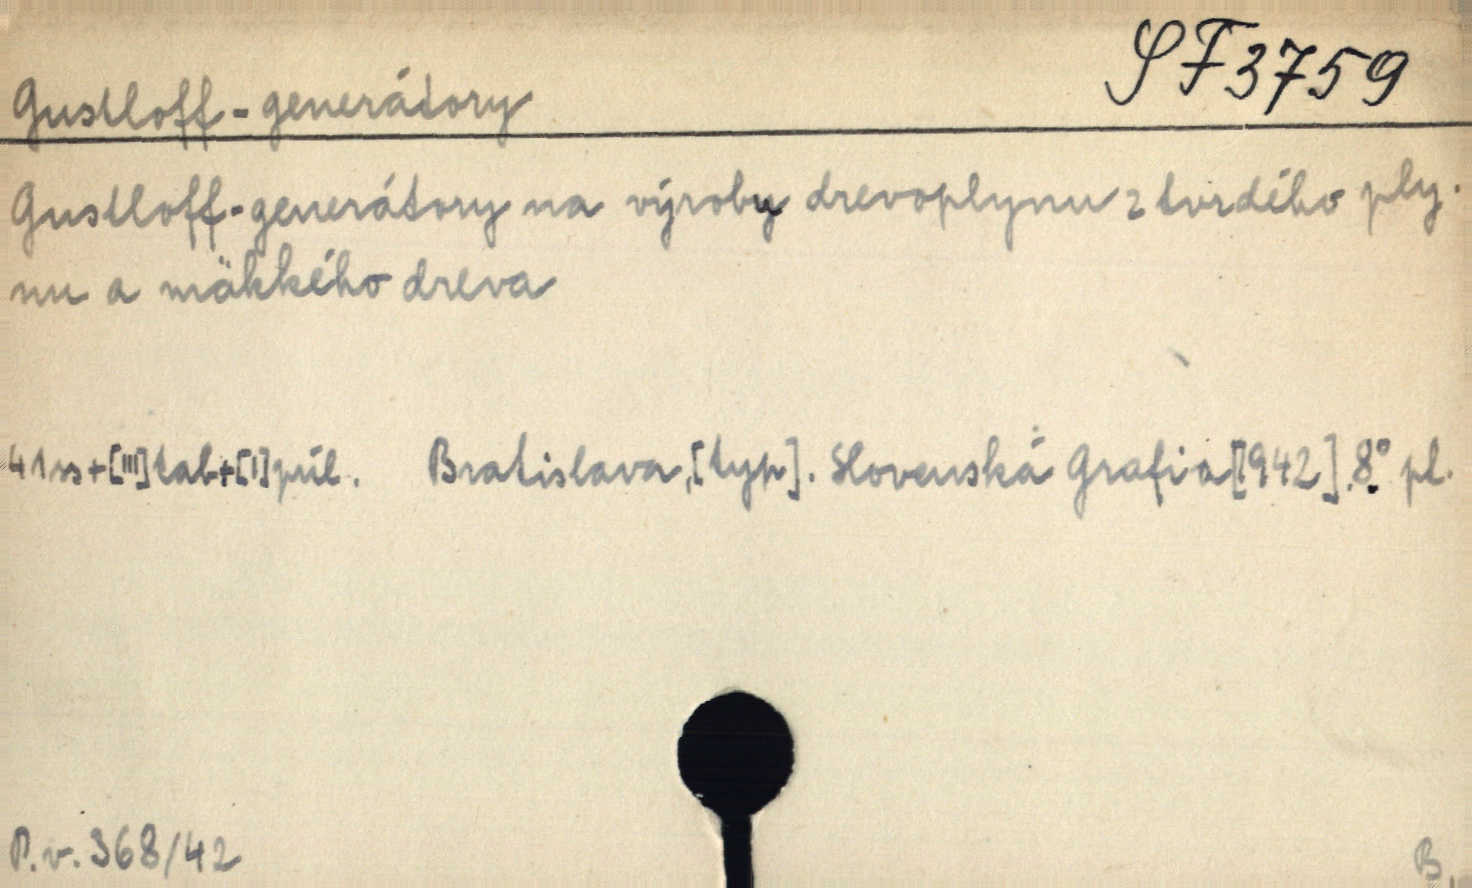 SF3759
Gustloff-generátory
Gustloff-generátory na výroby drevoplynu z tvrdého ply-
nu a mäkkého dreva
41 ss + [III] tab + [I] príl. Bratislava, [typ]. Slovenská Grafia [1942]. 8° pl.
P. v. 368/42
B.